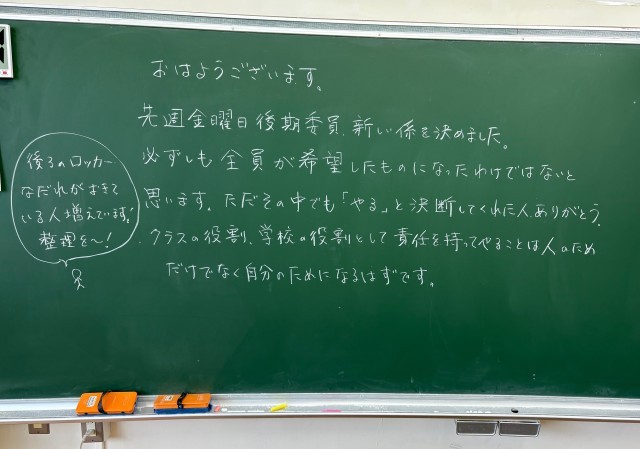 おはようございます。
先週金曜日後期委員、新しい係を決めました。
必ずしも全員が希望したものになったわけではないと
思います。ただその中でも「やる」と決断してくれた人、ありがとう。
クラスの役割、学校の役割として責任を持ってやることは人のため
だけでなく自分のためになるはずです。
後ろのロッカー
なだれがおきて
いる人増えています!
整理を〜!